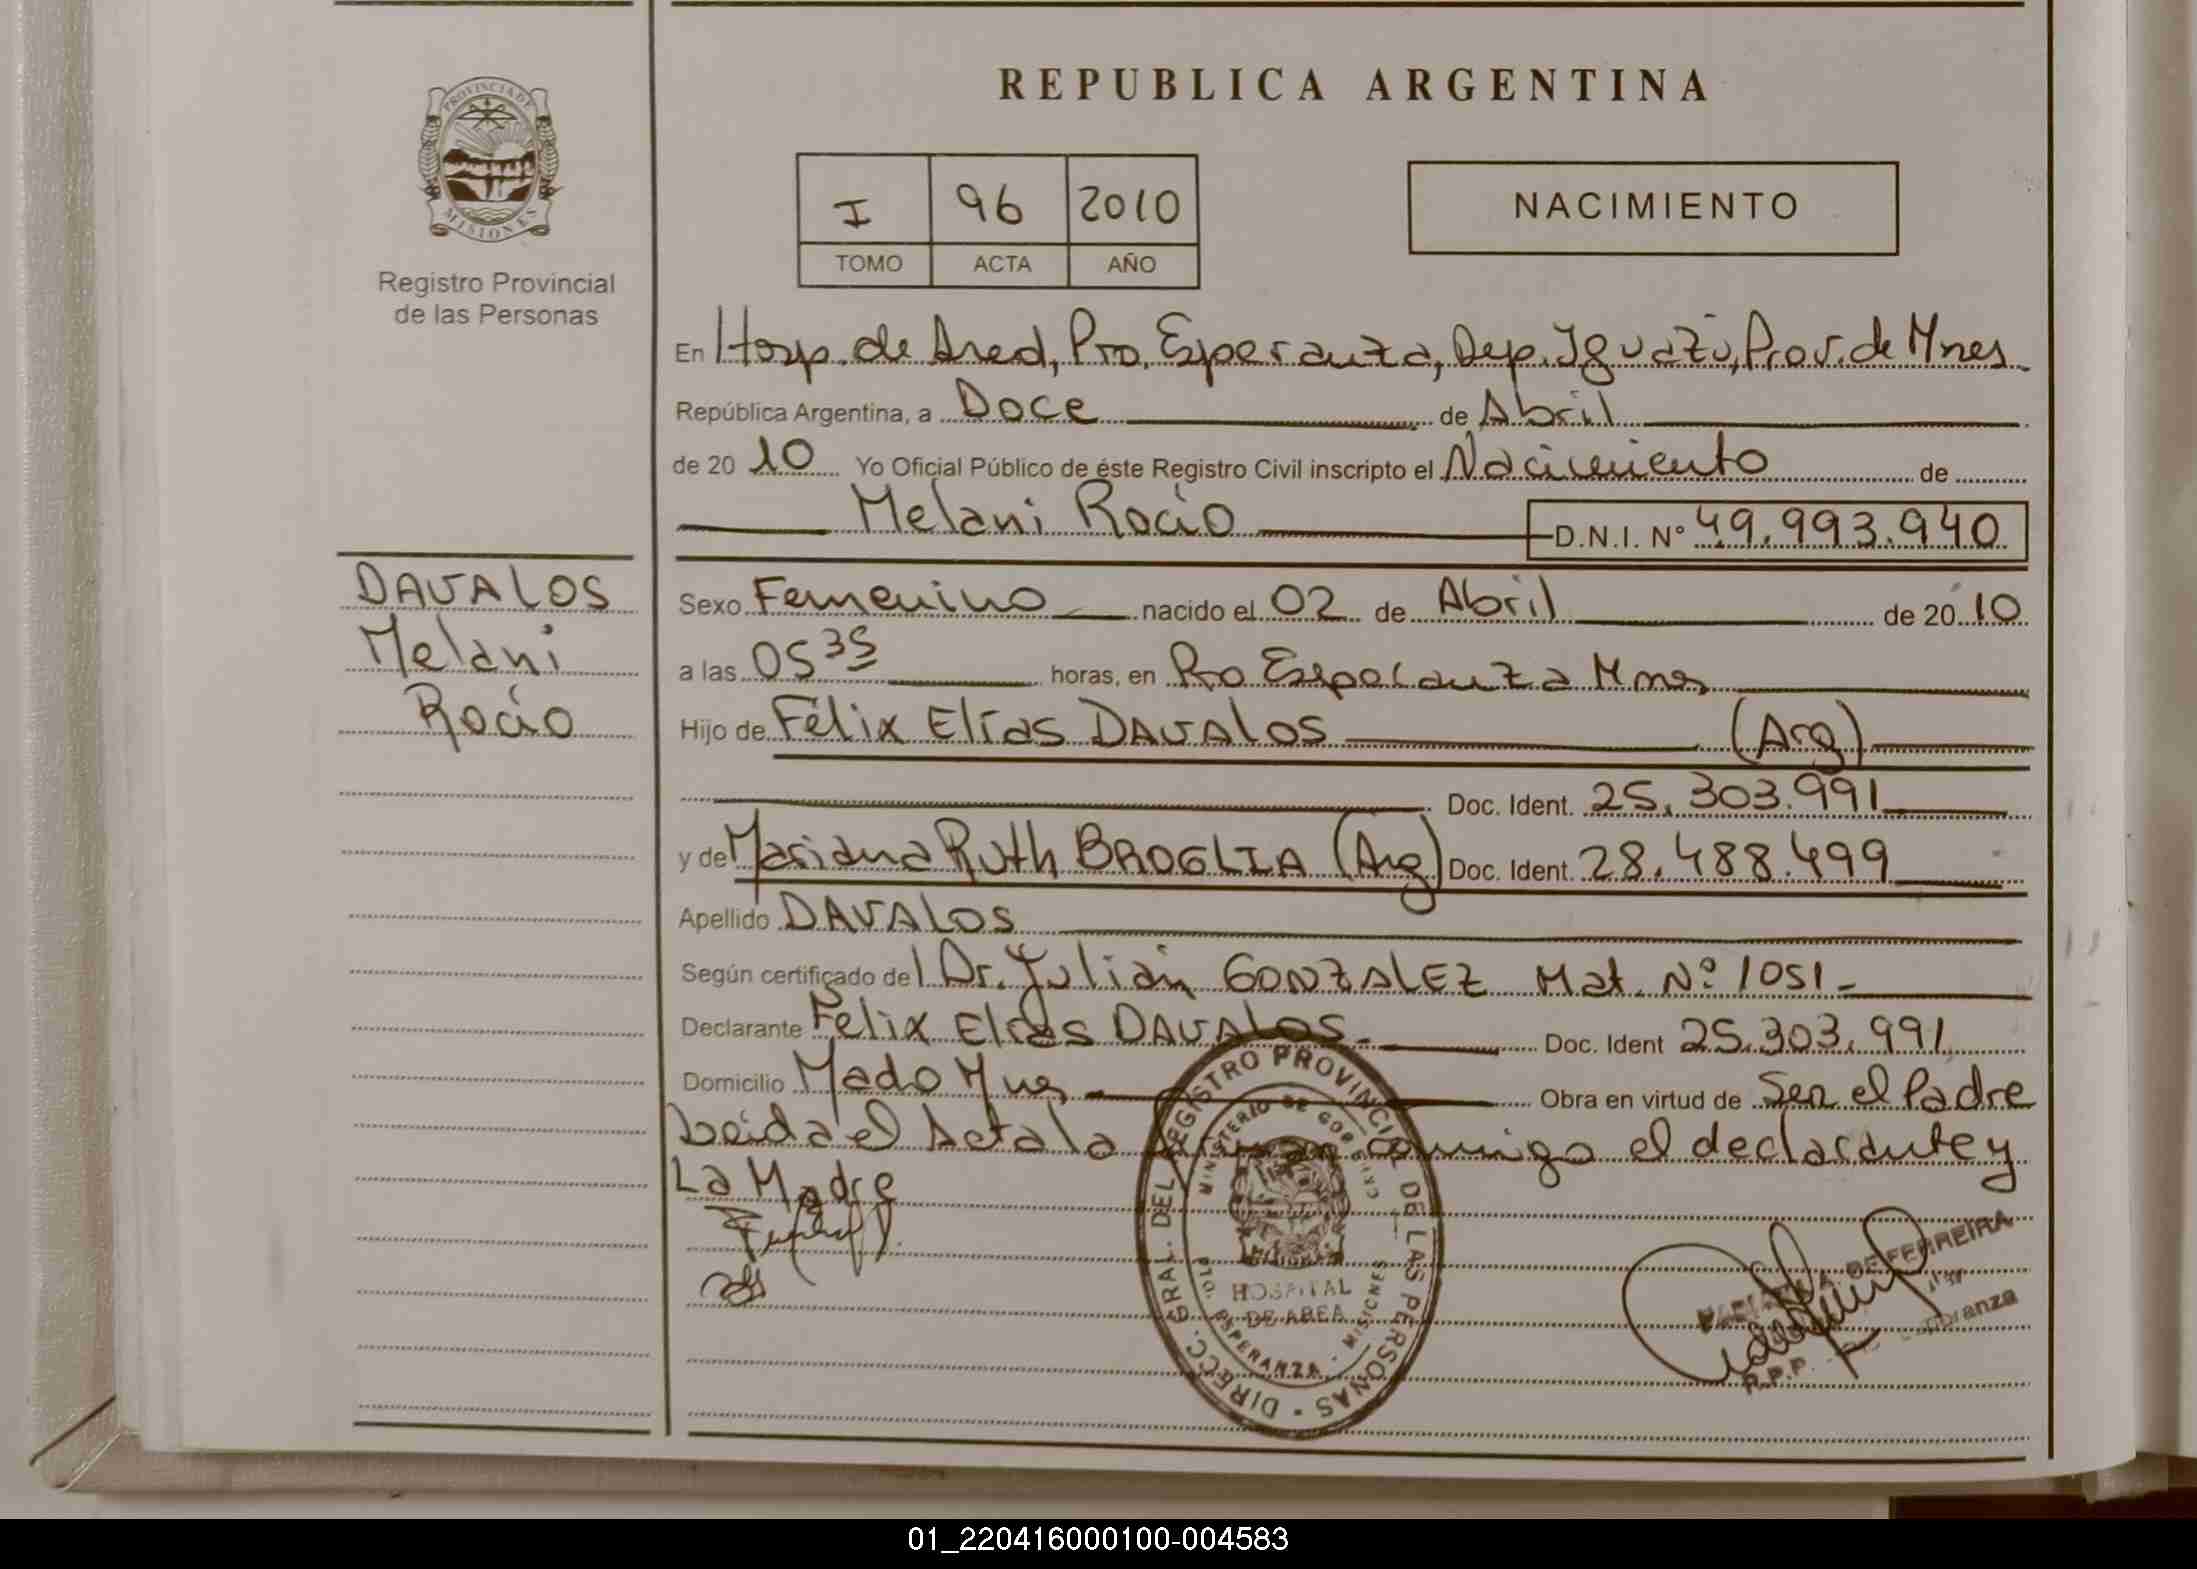 PROVINCIA DE
MISIONES
Registro Provincial
de las Personas
REPUBLICA ARGENTINA
I 96 2010
TOMO ACTA AÑO
NACIMIENTO
En Hosp. de Area, Pto. Esperanza, Dep. Iguazú, Prov. de Mnes
República Argentina, a Doce de Abril
de 20 10 Yo Oficial Público de éste Registro Civil inscripto el Nacimiento de
Melani Rocío D.N.I. Nº 49.993.940
DAVALOS
Melani
Rocío
Sexo Femenino nacido el 02 de Abril de 20 10
a las 05 35 horas, en Pto Esperanza Mnes
Hijo de Félix Elías DAVALOS (Arg)
Doc. Ident. 25.303.991
y de Mariana Ruth BROGLIA (Arg) Doc. Ident. 28.488.499
Apellido DAVALOS
Según certificado del Dr. Julián GONZALEZ Mat. Nº 1051-
Declarante Félix Elías DAVALOS. Doc. Ident 25.303.991
Domicilio Mado Mnes Obra en virtud de Ser el Padre
Leida el Acta la firman conmigo el declarante y
La Madre
DIRECC. GRAL. DEL REGISTRO PROVINCIAL DE LAS PERSONAS
MINISTERIO DE GOBIERNO
HOSPITAL
DE AREA
PTO. ESPERANZA - MISIONES
DE FERREIRA
R.P.P.
01_220416000100-004583